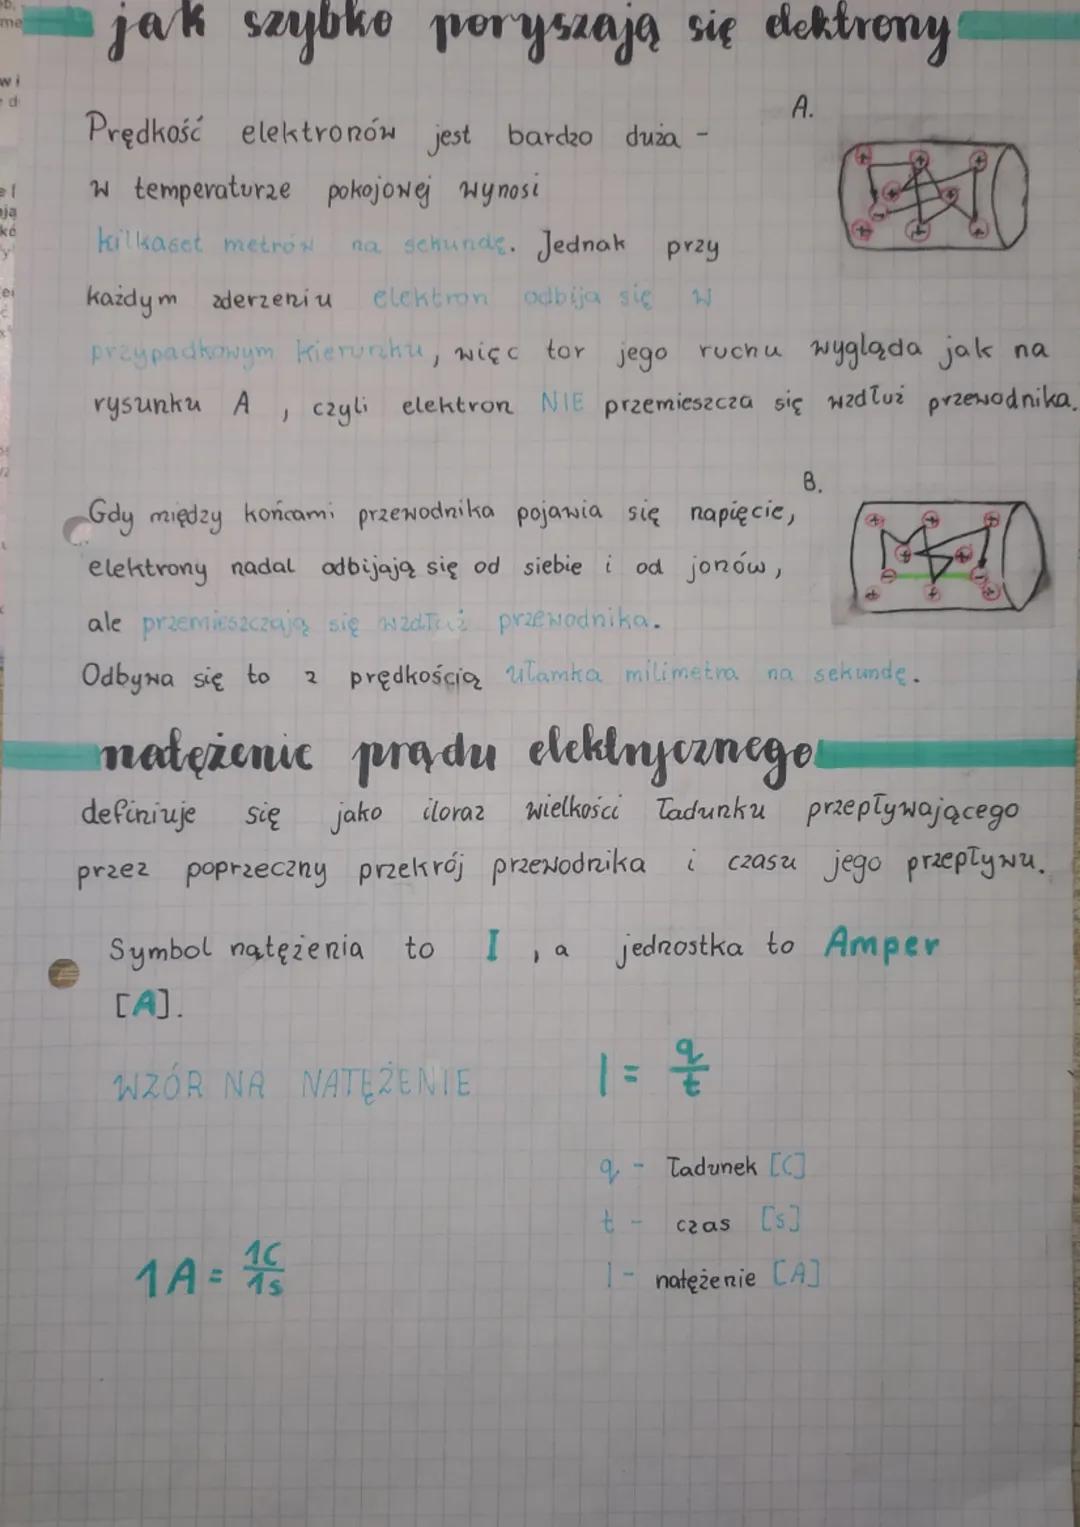 jak szybko poryszają się elektrony
A.
Prędkość elektronów jest bardzo duża -
w temperaturze pokojowej wynosi
kilkaset metrów na sekundę. Jednak przy
każdym zderzeniu elektron odbija się w
przypadkowym kierunku, więc tor jego ruchu wygląda jak na
rysunku A, czyli elektron NIE przemieszcza się wzdłuż przewodnika.
B.
Gdy między końcami przewodnika pojawia się napięcie,
elektrony nadal odbijają się od siebie i od jonów,
ale przemieszczają się wzdłuż przewodnika.
Odbywa się to z prędkością ułamka milimetra na sekundę.
natężenie prądu elektrycznego
definiuje się jako iloraz wielkości ładunku przepływającego
przez poprzeczny przekrój przewodnika i czasu jego przepływu.
Symbol natężenia to I, a jednostka to Amper
[A].
WZÓR NA NATĘŻENIE I = q/t
q - ładunek [C]
t - czas [s]
1A = 1C/1s
I - natężenie [A]